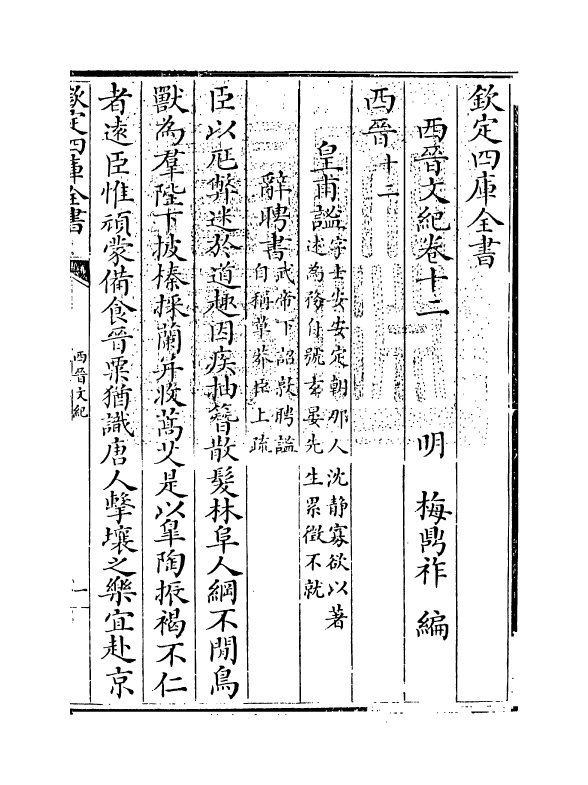 欽定四庫全書
西晉文紀卷十二
明 梅鼎祚 編
西晉十二
皇甫謐字士安安定朝那人沈静寡欲以著
述為務自號玄晏先生累徵不就
辭聘書武帝下詔敦聘謐
自稱草莽臣上疏
臣以尫弊迷於道趣因疾抽簪散髮林阜人綱不閒鳥
獸為羣陛下披榛採蘭并收蒿艾是以臯陶振褐不仁
者逺臣惟頑蒙備食晉粟猶識唐人擊壤之樂宜赴京
欽定四庫全書
西晉文紀
一